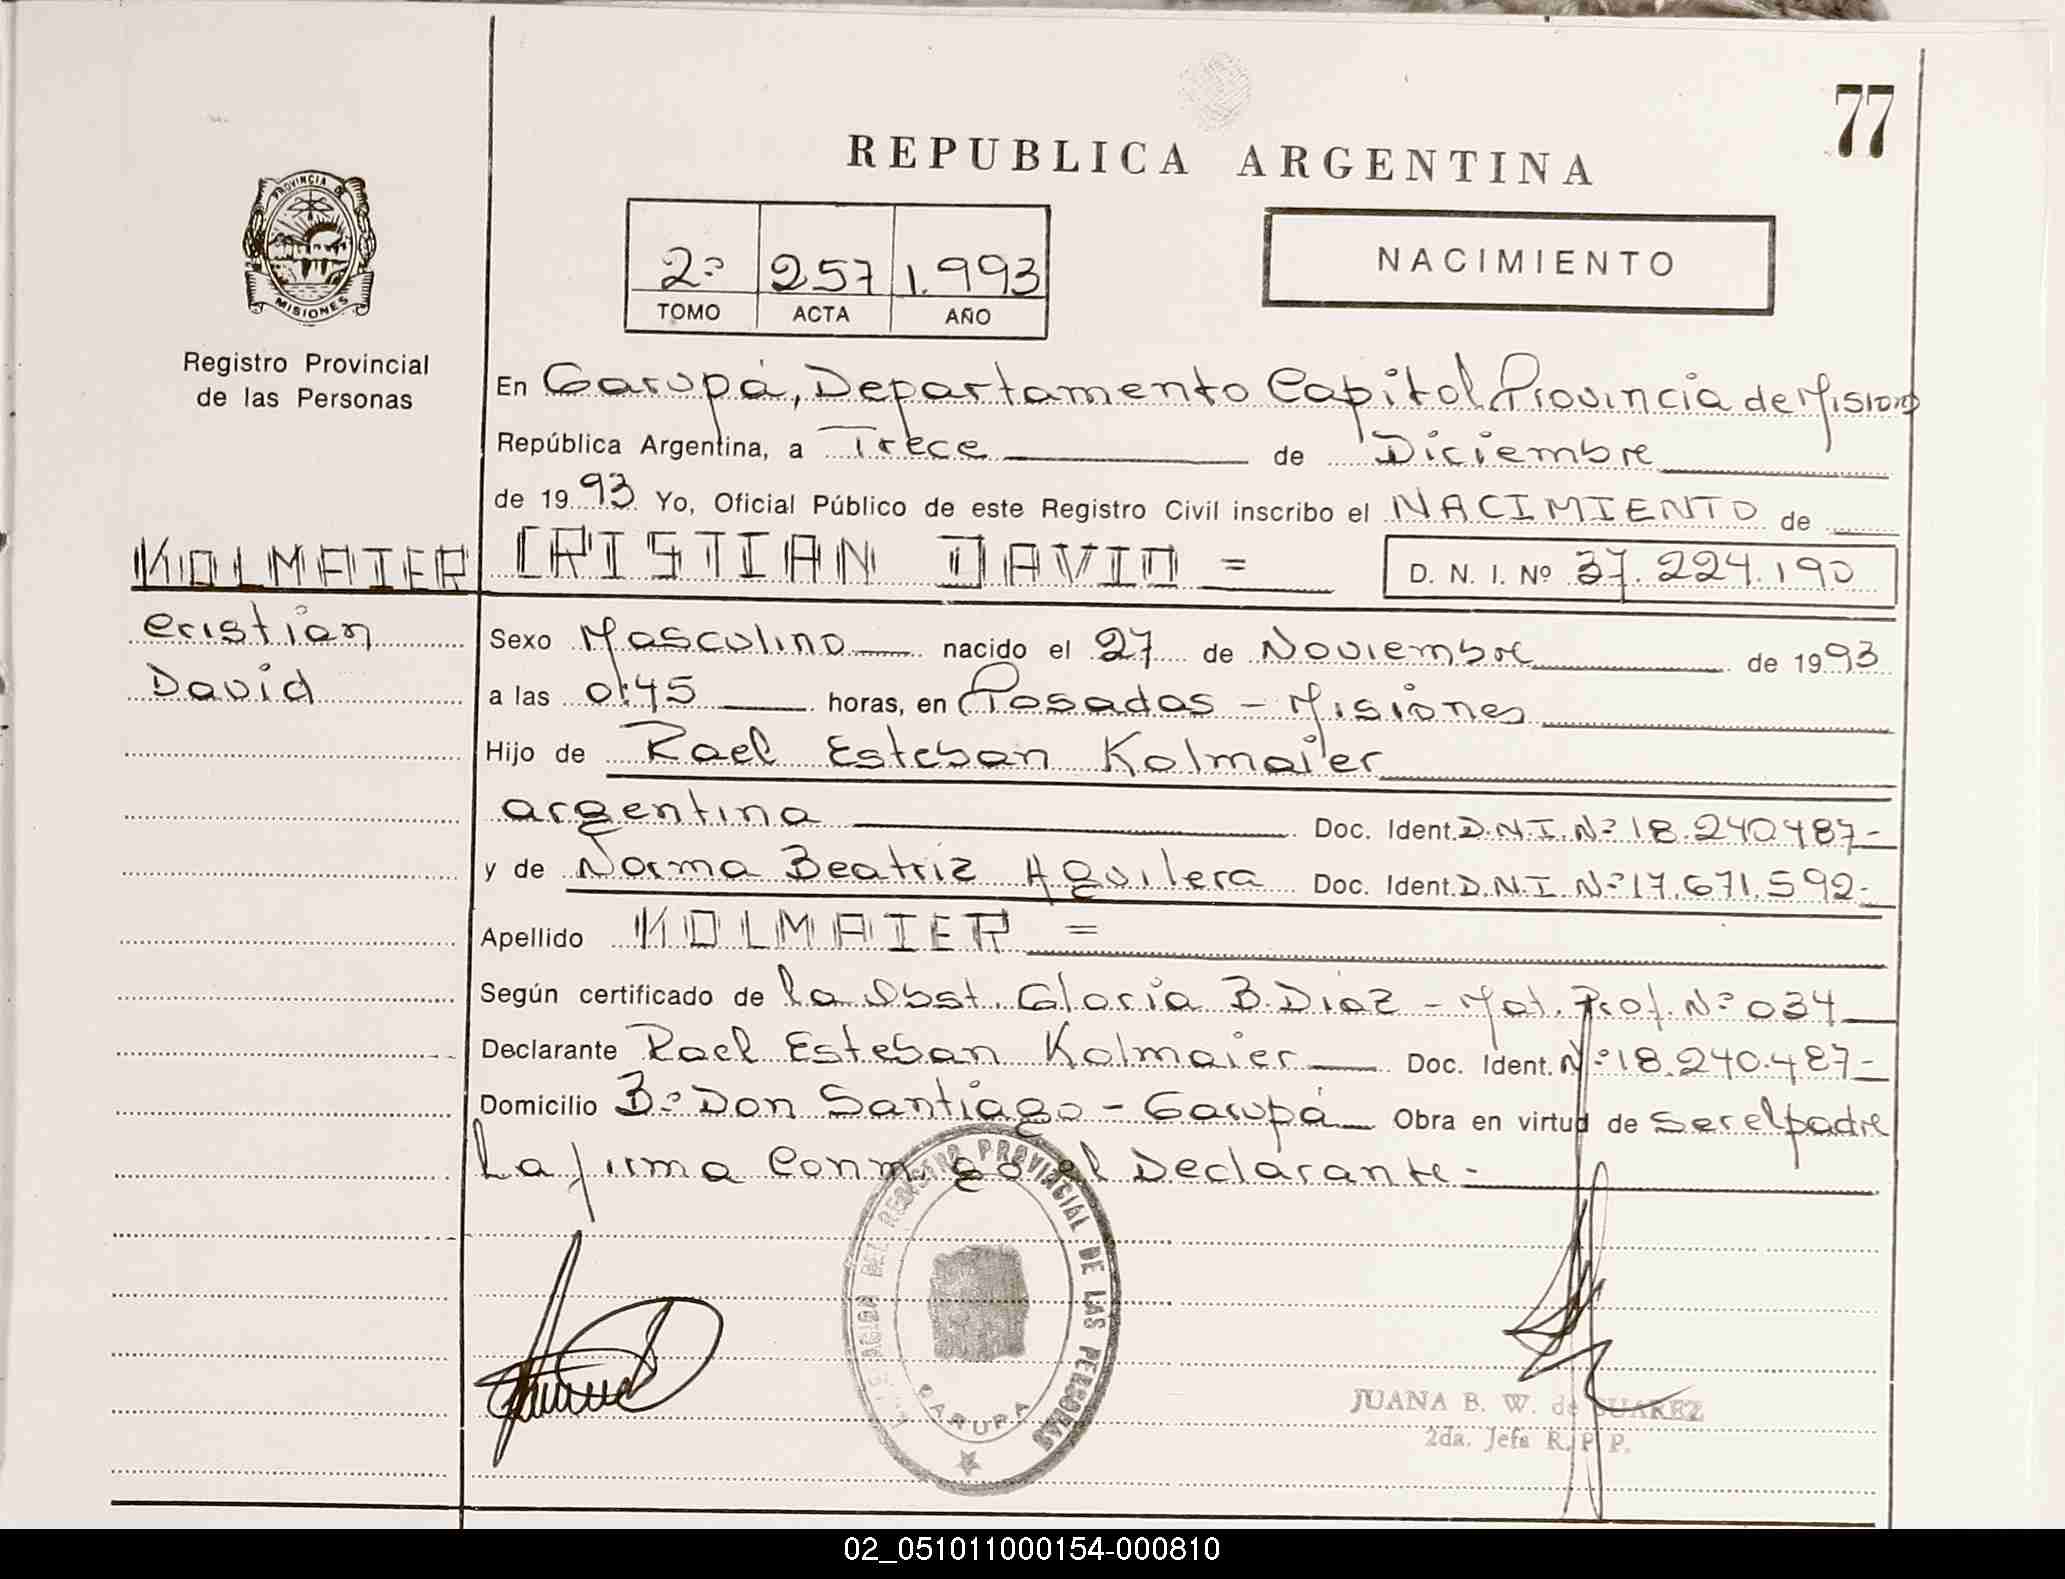 77
REPUBLICA ARGENTINA
PROVINCIA DE
MISIONES
Registro Provincial
de las Personas
2º 257 1.993
TOMO ACTA AÑO
NACIMIENTO
En Garupá, Departamento Capital Provincia de Misiones
República Argentina, a Trece de Diciembre
de 1993 Yo, Oficial Público de este Registro Civil inscribo el NACIMIENTO de
KOLMAIER CRISTIAN DAVID = D. N. I. Nº 37.224.190
Cristian
David
Sexo Masculino nacido el 27 de Noviembre de 1993
a las 0:45 horas, en Posadas - Misiones
Hijo de Rael Esteban Kolmaier
argentina Doc. Ident. D.N.I. Nº 18.240.487-
y de Norma Beatriz Aguilera Doc. Ident. D.N.I. Nº 17.671.592-
Apellido KOLMAIER =
Según certificado de la Obst. Gloria B. Diaz - Mat. Prof. Nº 034
Declarante Rael Esteban Kolmaier Doc. Ident. Nº 18.240.487-
Domicilio Bº Don Santiago - Garupá Obra en virtud de ser el padre
La firma Conmigo el Declarante-
DEL REGISTRO PROVINCIAL DE LAS PERSONAS
GARUPA
JUANA B. W. de SUAREZ
2da. Jefa R. P. P.
02_051011000154-000810